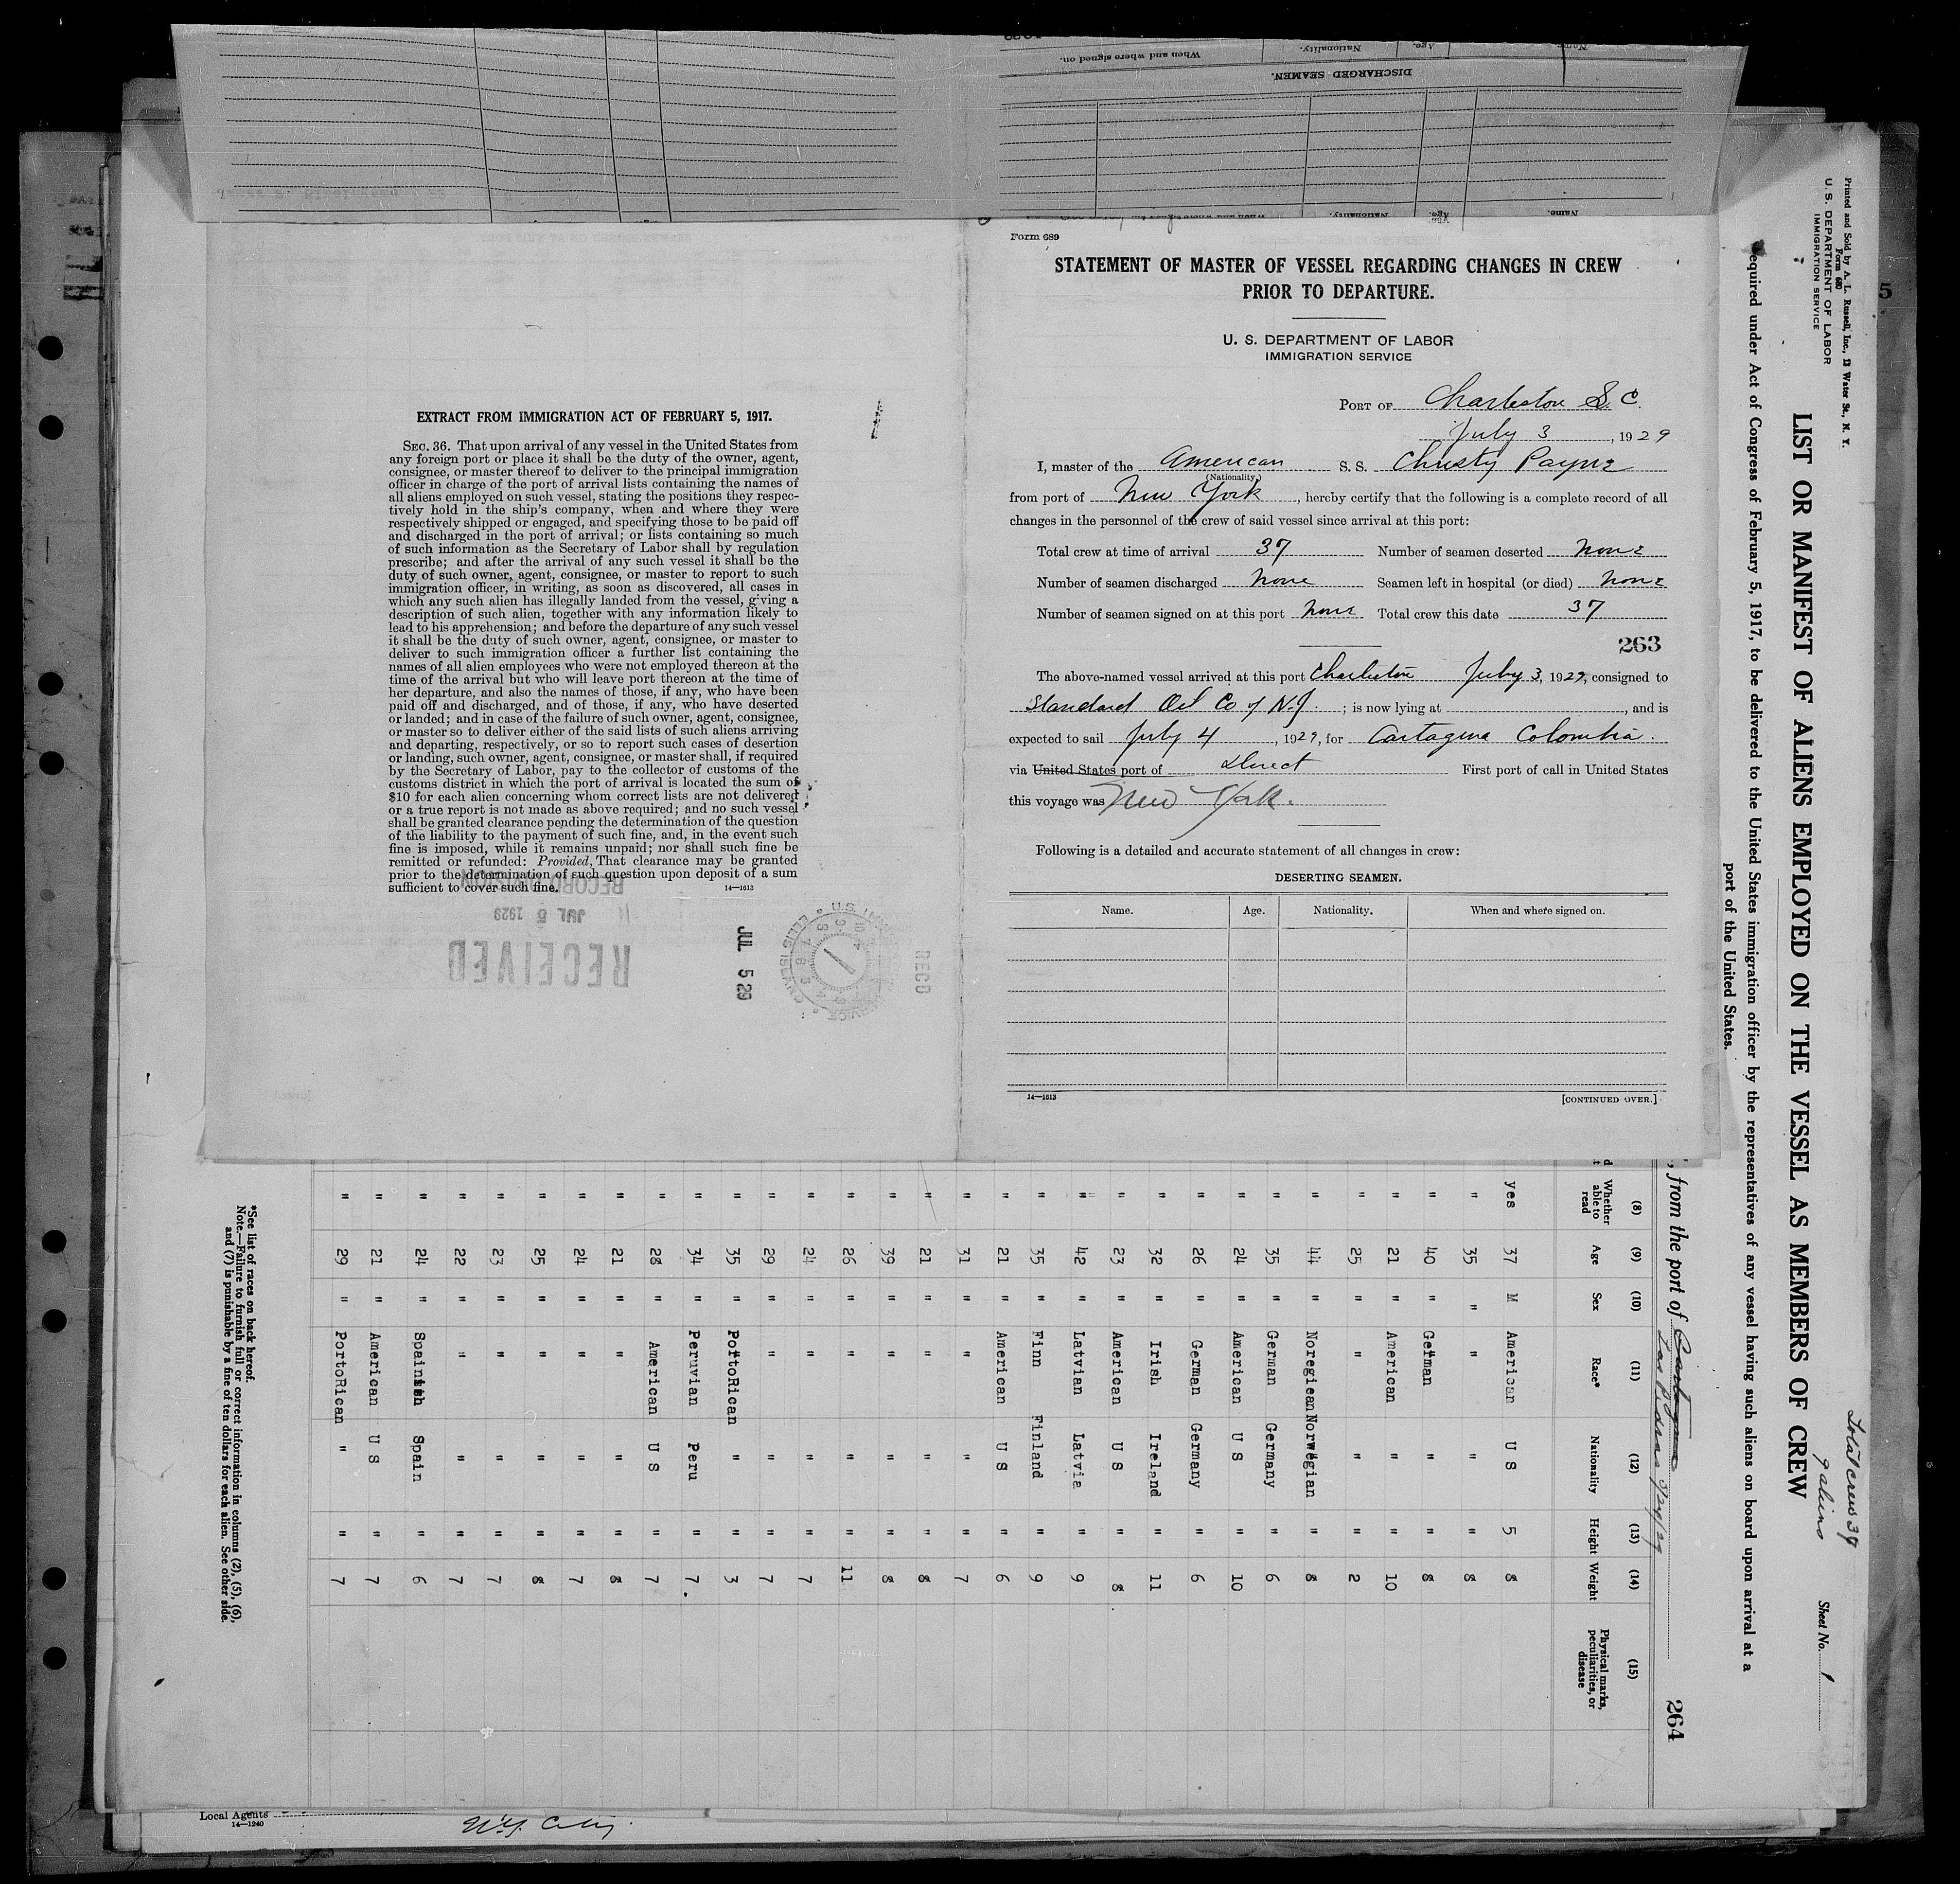 When and where signed on. Nationality. Age. Name.
DISCHARGED SEAMEN.
When and where signed on. Nationality. Age. Name.
EXTRACT FROM IMMIGRATION ACT OF FEBRUARY 5, 1917.
SEC. 36. That upon arrival of any vessel in the United States from
any foreign port or place it shall be the duty of the owner, agent,
consignee, or master thereof to deliver to the principal immigration
officer in charge of the port of arrival lists containing the names of
all aliens employed on such vessel, stating the positions they respec-
tively hold in the ship's company, when and where they were
respectively shipped or engaged, and specifying those to be paid off
and discharged in the port of arrival; or lists containing so much
of such information as the Secretary of Labor shall by regulation
prescribe; and after the arrival of any such vessel it shall be the
duty of such owner, agent, consignee, or master to report to such
immigration officer, in writing, as soon as discovered, all cases in
which any such alien has illegally landed from the vessel, giving a
description of such alien, together with any information likely to
lead to his apprehension; and before the departure of any such vessel
it shall be the duty of such owner, agent, consignee, or master to
deliver to such immigration officer a further list containing the
names of all alien employees who were not employed thereon at the
time of the arrival but who will leave port thereon at the time of
her departure, and also the names of those, if any, who have been
paid off and discharged, and of those, if any, who have deserted
or landed; and in case of the failure of such owner, agent, consignee,
or master so to deliver either of the said lists of such aliens arriving
and departing, respectively, or so to report such cases of desertion
or landing, such owner, agent, consignee, or master shall, if required
by the Secretary of Labor, pay to the collector of customs of the
customs district in which the port of arrival is located the sum of
$10 for each alien concerning whom correct lists are not delivered
or a true report is not made as above required; and no such vessel
shall be granted clearance pending the determination of the question
of the liability to the payment of such fine, and, in the event such
fine is imposed, while it remains unpaid; nor shall such fine be
remitted or refunded: Provided, That clearance may be granted
prior to the determination of such question upon deposit of a sum
sufficient to cover such fine. 14—1613
RECORD DIVISION
JUL 5 1929
RECEIVED
JUL 5 29
REC'D
Form 689
STATEMENT OF MASTER OF VESSEL REGARDING CHANGES IN CREW
PRIOR TO DEPARTURE.
U. S. DEPARTMENT OF LABOR
IMMIGRATION SERVICE
PORT OF Charleston S. C.
July 3, 1929
I, master of the American S. S. Christy Payne
(Nationality.)
from port of New York, hereby certify that the following is a complete record of all
changes in the personnel of the crew of said vessel since arrival at this port:
Total crew at time of arrival 37 Number of seamen deserted none
Number of seamen discharged none Seamen left in hospital (or died) none
Number of seamen signed on at this port none Total crew this date 37
263
The above-named vessel arrived at this port Charleston July 3, 1929, consigned to
Standard Oil Co of N.J. ; is now lying at , and is
expected to sail July 4, 1929, for Cartagena Colombia.
via United States port of Direct First port of call in United States
this voyage was New York.
Following is a detailed and accurate statement of all changes in crew:
DESERTING SEAMEN.
Name. Age. Nationality. When and where signed on.
14—1613 [CONTINUED OVER.]
Printed and Sold by A. L. Russell, Inc., 13 Water St., N. Y.
Form 680
U. S. DEPARTMENT OF LABOR
IMMIGRATION SERVICE
Total crew 37
9 aliens
Sheet No. 1
LIST OR MANIFEST OF ALIENS EMPLOYED ON THE VESSEL AS MEMBERS OF CREW
Required under Act of Congress of February 5, 1917, to be delivered to the United States immigration officer by the representatives of any vessel having such aliens on board upon arrival at a
port of the United States.
, from the port of Cartagena 264
Las Piedras
(8) (9) (10) (11) (12) (13) (14) (15)
Whether able to read Age Sex Race* Nationality Height Weight Physical marks, peculiarities, or disease
yes 37 M American U S 5 8
" 35 " " " " 8
" 40 " German " " 8
" 21 " American " " 10
" 25 " " " " 2
" 44 " Noregiean Norwegian " 8
" 35 " German Germany " 6
" 24 " American U S " 10
" 26 " German Germany " 6
" 32 " Irish Ireland " 11
" 23 " American U S " 8
" 42 " Latvian Latvia " 9
" 35 " Finn Finland " 9
" 21 " American U S " 6
" 31 " " " " 7
" 21 " " " " 8
" 39 " " " " 8
" 26 " " " " 11
" 24 " " " " 7
" 29 " " " " 7
" 35 " PortoRican " " 3
" 34 " Peruvian Peru " 7.
" 28 " American U S " 7
" 21 " " " " 8
" 24 " " " " 7
" 25 " " " " 8
" 23 " " " " 7
" 22 " " " " 7
" 24 " Spainish Spain " 6
" 21 " American U S " 7
" 29 " PortoRican " " 7
*See list of races on back hereof.
Note.—Failure to furnish full or correct information in columns (2), (5), (6),
and (7) is punishable by a fine of ten dollars for each alien. See other side.
Local Agents
14—1240
N.Y. City.
5